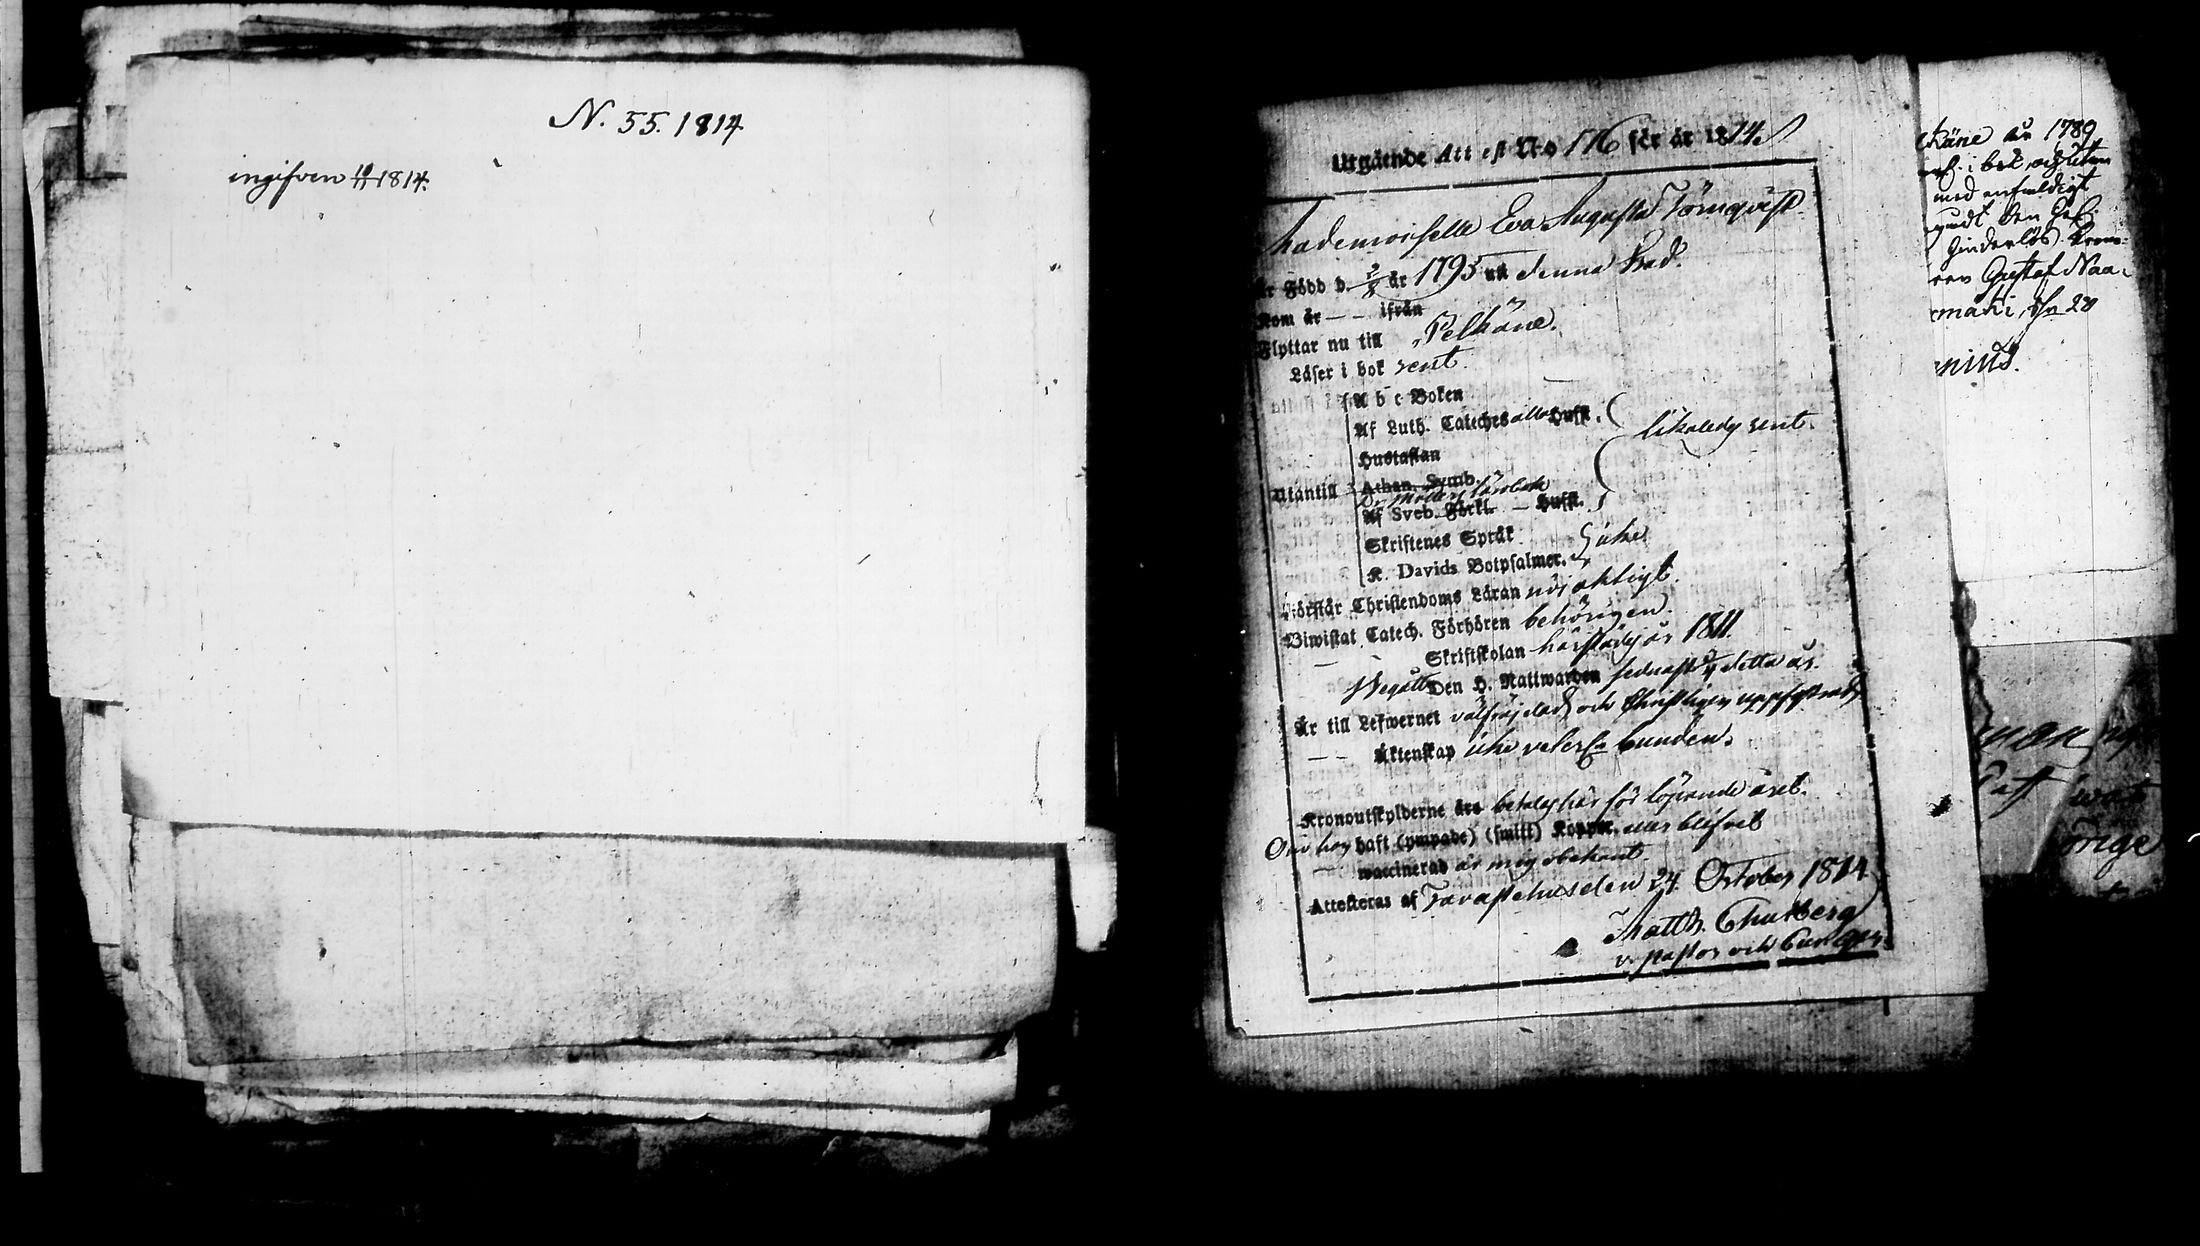 N. 55. 1814
ingifven 10/11 1814.
Utgående Attest No 116 för år 1814
Mademoiselle Eva Augusta Törnqvist
Är Född d. 2/8 år 1795 uti denna Stad.
Kom år — — ifrån
Flyttar nu till Pelkäne.
Läser i bok rent.
A b c Boken
Af Luth. Cateches alla Hufst.
likaledes rent.
Hustaflan
Utantill
Athan. Symb.
Dr Möllers Lärobok
Af Sveb. Förkl. — Hufst.
Skriftenes Språk
icke
K. Davids Botpsalmer.
Förstår Christendoms Läran nöjaktigt.
Biwistat Catech. Förhören behörigen.
— — Skriftskolan härstädes år 1811.
Begått Den H. Nattwarden sednast detta år.
Är till Lefwernet välfrejdad och Christligen uppfostrad
— — Äktenskap icke veterl. bunden.
Kronoutskylderne äro betalas här för löpande året.
Om hon haft (ympade) (smitt) Koppor, eller blifvit
— waccinerad är mig obekant.
Attesteras af Tavastehus den 24 October 1814
Matth. Churberg
v. pastor och
käne år 1789
i bok, och utan
med enfaldigt
gudt den
hinderlös.
ren Gustaf Naa-
mäki, 28
nius.